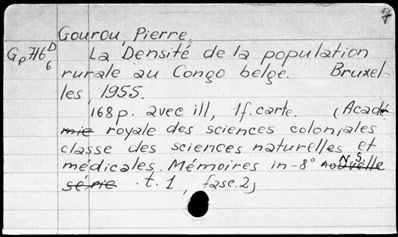 Gourou, Pierre.
Gp 716 D 6
La Densité de la population
rurale au Congo belge. Bruxel-
les, 1955.
168 p. avec ill, 1 f. carte. (Acadé
mie royale des sciences coloniales
classe des sciences naturelles et
médicales. Mémoires in-8° nouvelle N.S.
série . t. 1, fasc. 2)